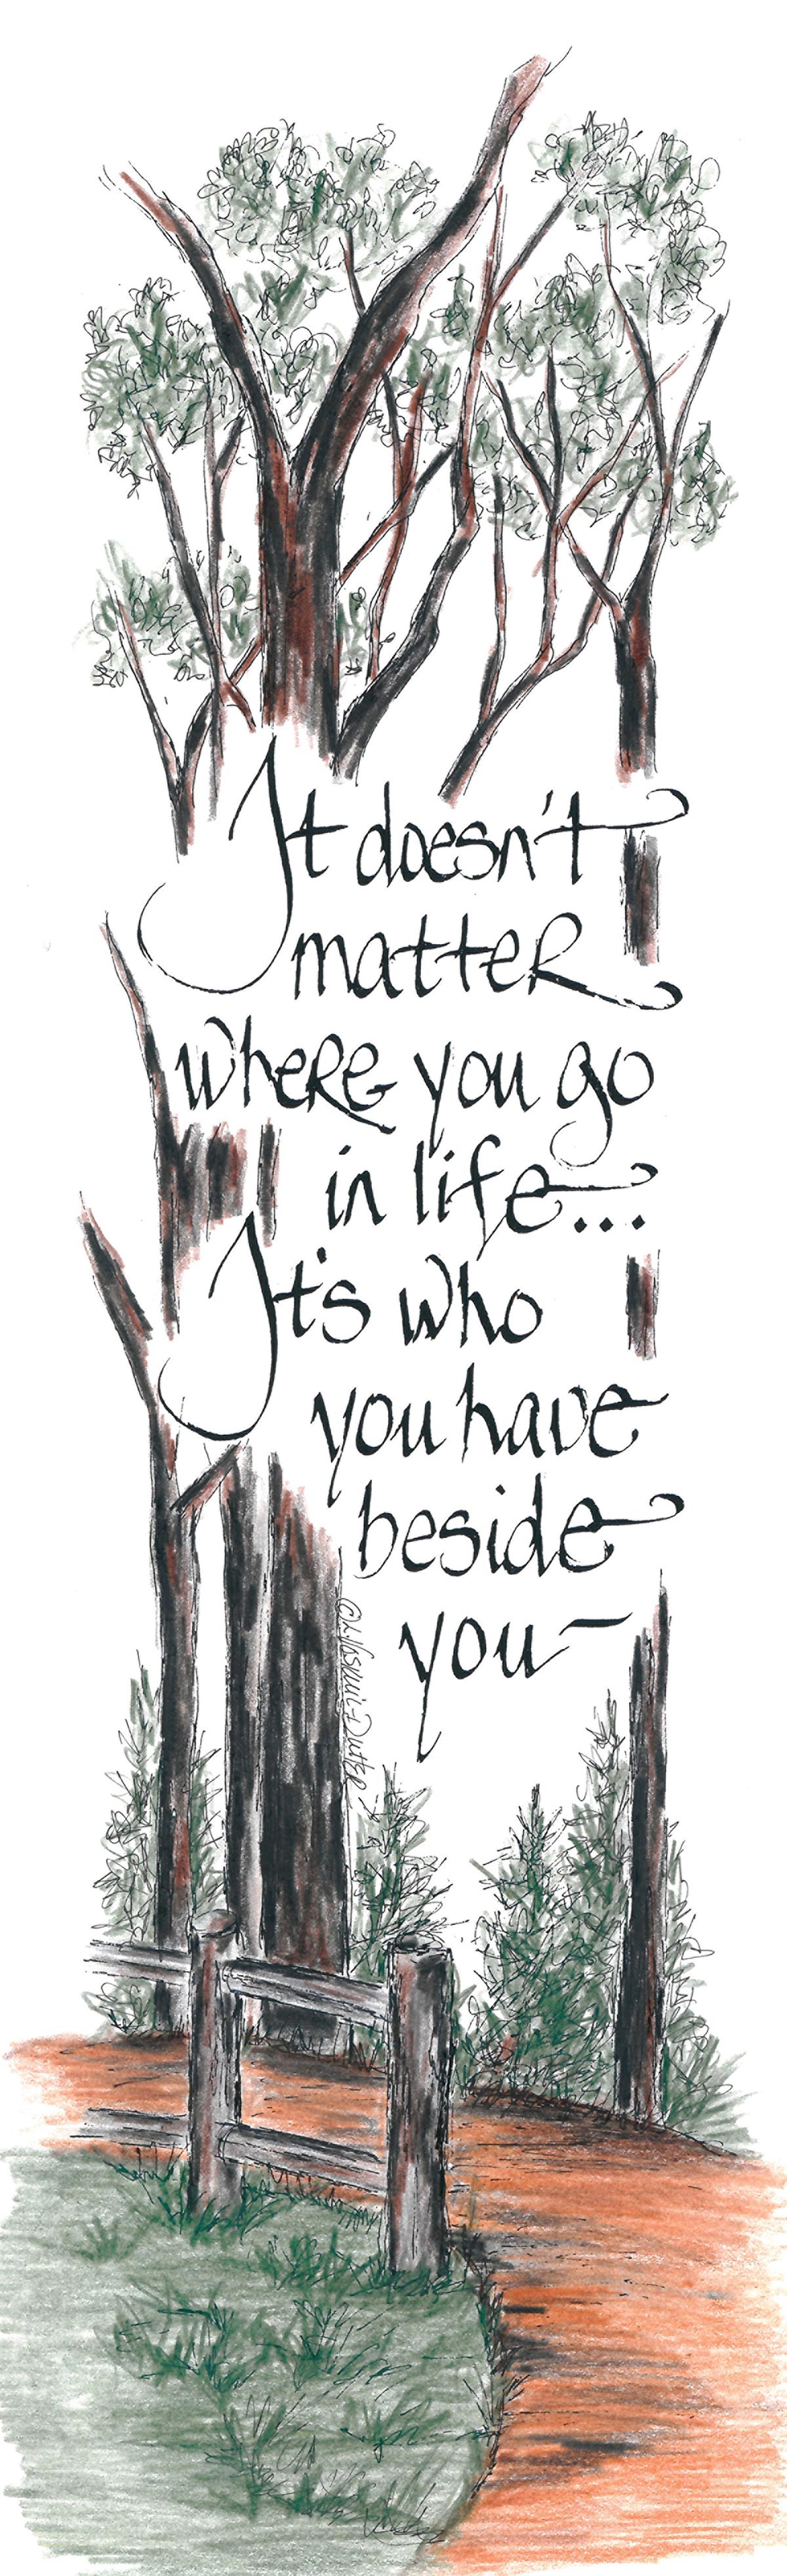 It doesn't
matter
where you go
in life...
It's who
you have
beside
you-